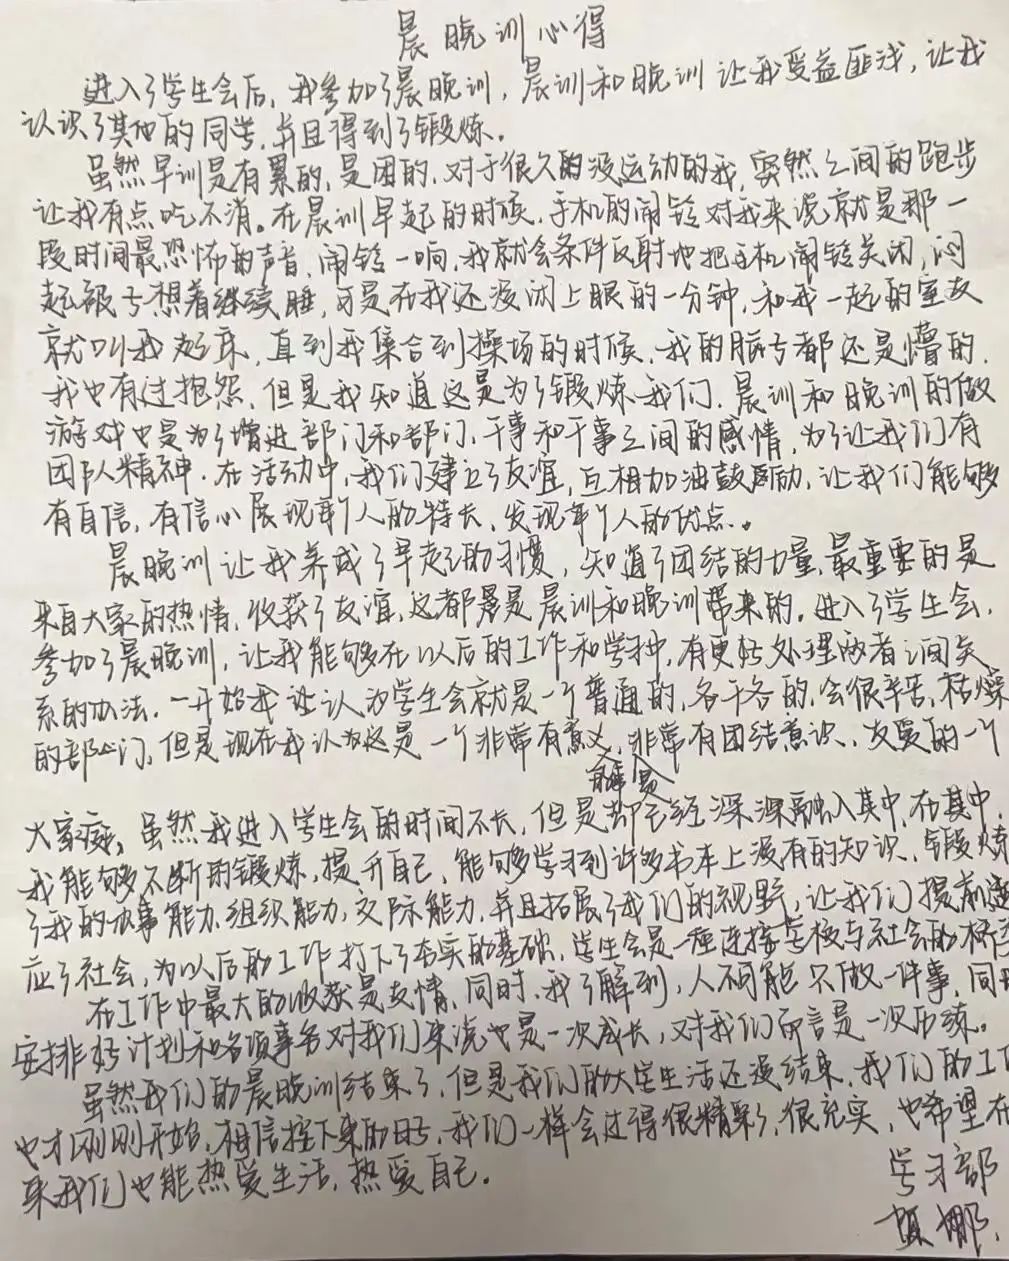 晨晚训心得
进入了学生会后，我参加了晨晚训，晨训和晚训让我受益匪浅，让我
认识了其他的同学，并且得到了锻炼。
虽然早训是有累的，是困的，对于很久的没运动的我，突然之间的跑步
让我有点吃不消。在晨训早起的时候，手机的闹铃对我来说就是那一
段时间最恐怖的声音，闹铃一响，我就会条件反射地把手机闹铃关闭，闷
起被子想着继续睡，可是在我还没闭上眼的一分钟，和我一起的室友
就叫我起床，直到我集合到操场的时候，我的脑子都还是懵的，
我也有过抱怨，但是我知道这是为了锻炼我们，晨训和晚训的做
游戏也是为了增进部门和部门，干事和干事之间的感情，为了让我们有
团队精神．在活动中，我们建立了友谊，互相加油鼓励，让我们能够
有自信，有信心展现每个人的特长，发现每个人的优点。
晨晚训让我养成了早起的习惯，知道了团结的力量，最重要的是
来自大家的热情，收获了友谊，这都是晨训和晚训带来的，进入了学生会，
参加了晨晚训，让我能够在以后的工作和学种，有更好处理两者之间关
系的办法．一开始我认为学生会就是一个普通的，各干各的，会很辛苦，枯燥
的部门，但是现在我认为这是一个非常有意义，非常有团结意识，友爱的一个
大家庭，虽然我进入学生会的时间不长，但是却已经深深融入其中，在其中，
我能够不断的锻炼，提升自己，能够学习到许多书本上没有的知识，锻炼
了我的办事能力，组织能力，交际能力，并且拓展了我们的视野，让我们提前适
应了社会，为以后的工作打下了夯实的基础，学生会是一种连接学校与社会的桥
在工作中最大的收获是友情，同时，我了解到，人不可能只做一件事，同
安排好计划和各项事务对我们来说也是一次成长，对我们而言是一次历练。
虽然我们的晨晚训结束了，但是我们的大学生活还没结束，我们的工
也才刚刚开始，相信接下来的日子，我们一样会过得很精彩，很充实，也希望在
来我们也能热爱生活，热爱自己。
学习部
娜．